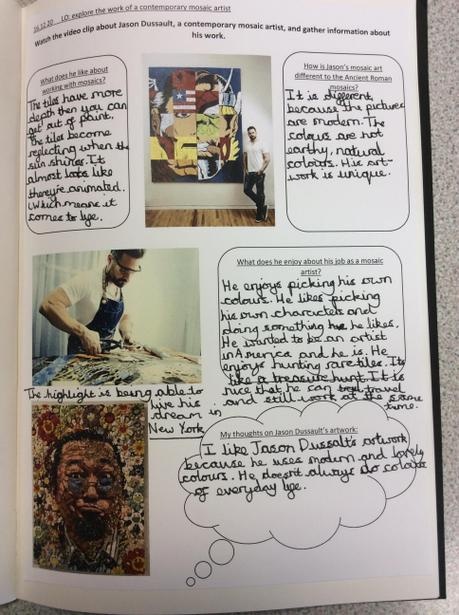 16.12.20 LO: explore the work of a contemporary mosaic artist
Watch the video clip about Jason Dussault, a contemporary mosaic artist, and gather information about
his work.
What does he like about
working with mosaics?
The tiles have more
depth then you can
get out of paint.
The tiles become
reflecting when the
sun shines. It
almost looks like
theyre animated.
Which means it
comes to lye.
How is Jason's mosaic art
different to the Ancient Roman
mosaics?
It is different,
because the pictures
are modern. The
colours are not
earthy, natural
colours. His art-
work is unique.
What does he enjoy about his job as a mosaic
artist?
He enjoys picking his own
colours. He likes picking
his own characters and
doing something he likes.
He wanted to be an artist
in America and he is. He
enjoys hunting rare tiles. Its
like a treasure hunt. It is
nice that he can travel
and still work at the same
time.
The highlight is being able to
live his
dream in
New York
My thoughts on Jason Dussault's artwork:
I like Jason Dussalt's artwork
because he uses modern and lovely
colours. He doesn't always do colours
of everyday lye.